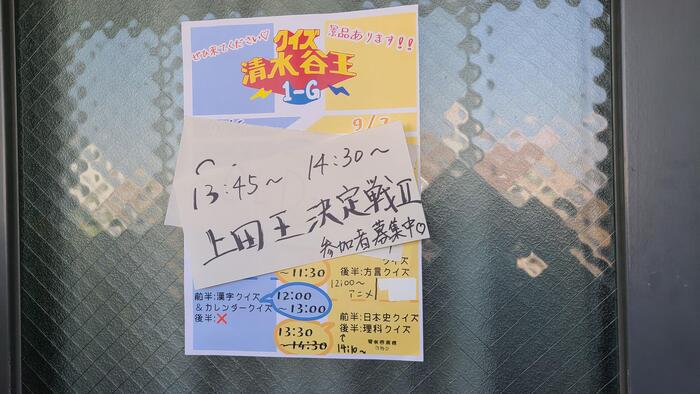 ぜひ来てください♡
景品あります!!
クイズ
清水谷王
1-G
9/7
13:45~ 14:30~
上田王 決定戦Ⅱ
参加者募集中♡
~11:30
クイズ
後半:方言クイズ
12:00~
アニメ
前半:漢字クイズ
&カレンダークイズ
後半:❌
12:00
~13:00
13:30
~14:30
前半:日本史クイズ
後半:理科クイズ
14:10~